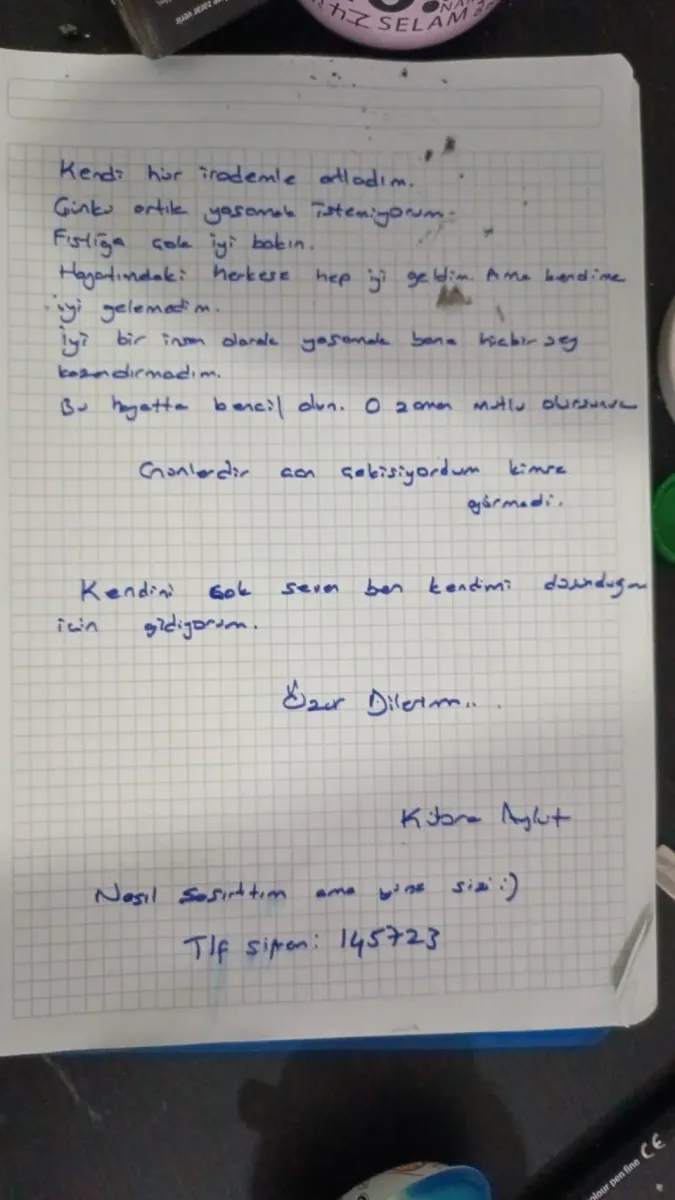 SELAM
Kendi hür irademle atladım.
Çünkü artık yaşamak istemiyorum.
Fıstığa çok iyi bakın.
Hayatımdaki herkese hep iyi geldim. Ama kendime
iyi gelemedim.
iyi bir insan olarak yaşamak bana hiçbir şey
kazandırmadım.
Bu hayatta bencil olun. O zaman mutlu olursunuz
Günlerdir can çekişiyordum kimse
görmedi.
Kendini çok seven ben kendimi düşündüğüm
için gidiyorum.
Özür Dilerim...
Nasıl şaşırttım ama yine sizi :)
Tlf şifrem: 145723
olour pen fine CE